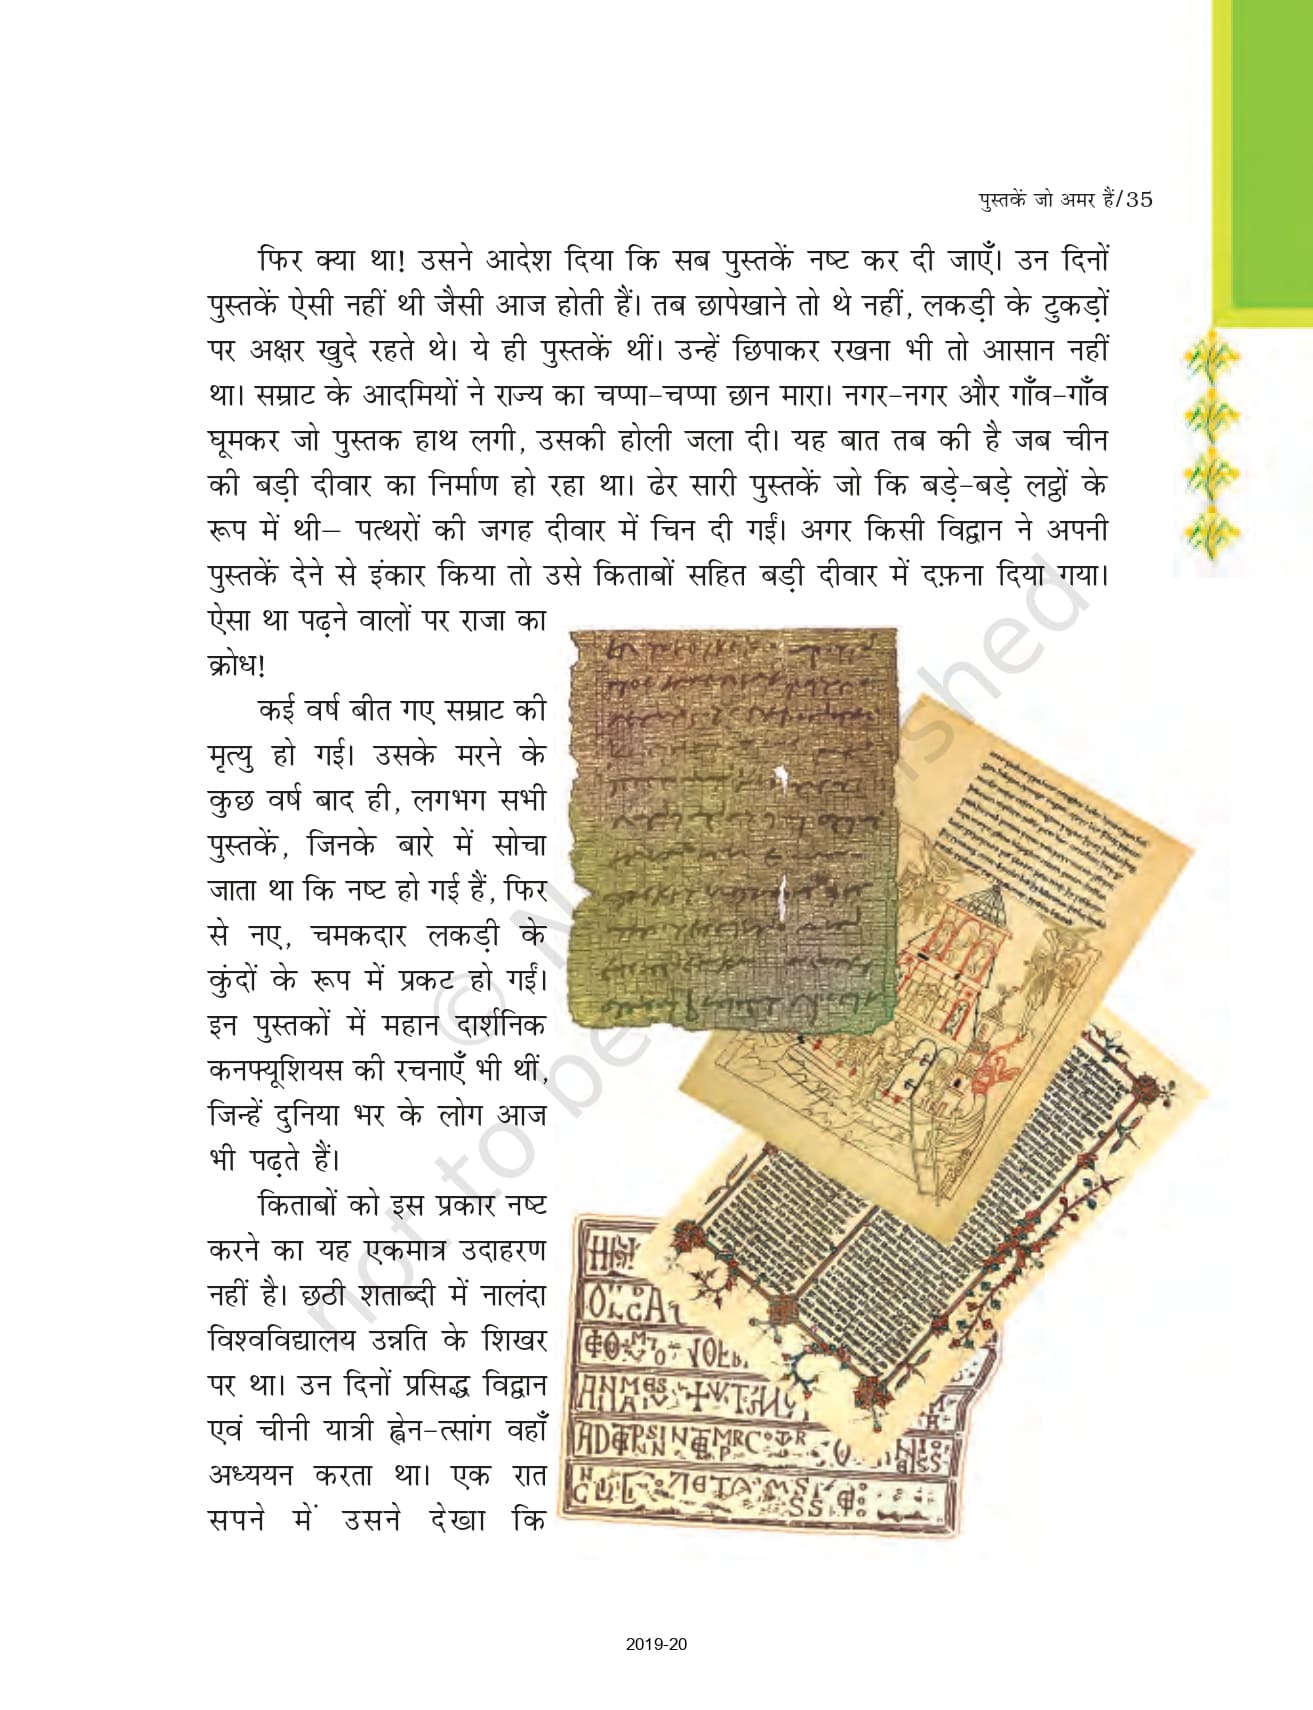 पुस्तकें जो अमर हैं/35
फिर क्या था! उसने आदेश दिया कि सब पुस्तकें नष्ट कर दी जाएँ। उन दिनों
पुस्तकें ऐसी नहीं थी जैसी आज होती हैं। तब छापेखाने तो थे नहीं, लकड़ी के टुकड़ों
पर अक्षर खुदे रहते थे। ये ही पुस्तकें थीं। उन्हें छिपाकर रखना भी तो आसान नहीं
था। सम्राट के आदमियों ने राज्य का चप्पा-चप्पा छान मारा। नगर-नगर और गाँव-गाँव
घूमकर जो पुस्तक हाथ लगी, उसकी होली जला दी। यह बात तब की है जब चीन
की बड़ी दीवार का निर्माण हो रहा था। ढेर सारी पुस्तकें जो कि बड़े-बड़े लट्ठों के
रूप में थी– पत्थरों की जगह दीवार में चिन दी गईं। अगर किसी विद्वान ने अपनी
पुस्तकें देने से इंकार किया तो उसे किताबों सहित बड़ी दीवार में दफ़ना दिया गया।
ऐसा था पढ़ने वालों पर राजा का
क्रोध!
कई वर्ष बीत गए सम्राट की
मृत्यु हो गई। उसके मरने के
कुछ वर्ष बाद ही, लगभग सभी
पुस्तकें, जिनके बारे में सोचा
जाता था कि नष्ट हो गई हैं, फिर
से नए, चमकदार लकड़ी के
कुंदों के रूप में प्रकट हो गईं।
इन पुस्तकों में महान दार्शनिक
कनफ्यूशियस की रचनाएँ भी थीं,
जिन्हें दुनिया भर के लोग आज
भी पढ़ते हैं।
किताबों को इस प्रकार नष्ट
करने का यह एकमात्र उदाहरण
नहीं है। छठी शताब्दी में नालंदा
विश्वविद्यालय उन्नति के शिखर
पर था। उन दिनों प्रसिद्ध विद्वान
एवं चीनी यात्री ह्वेन-त्सांग वहाँ
अध्ययन करता था। एक रात
सपने में उसने देखा कि
not to be shed
2019-20